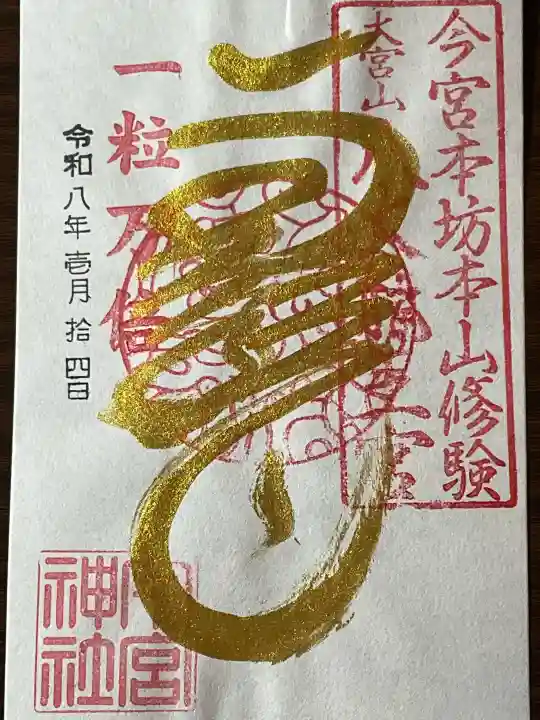 今宮本坊本山修験
大宮山
一粒万倍
令和八年壱月拾四日
今宮神社